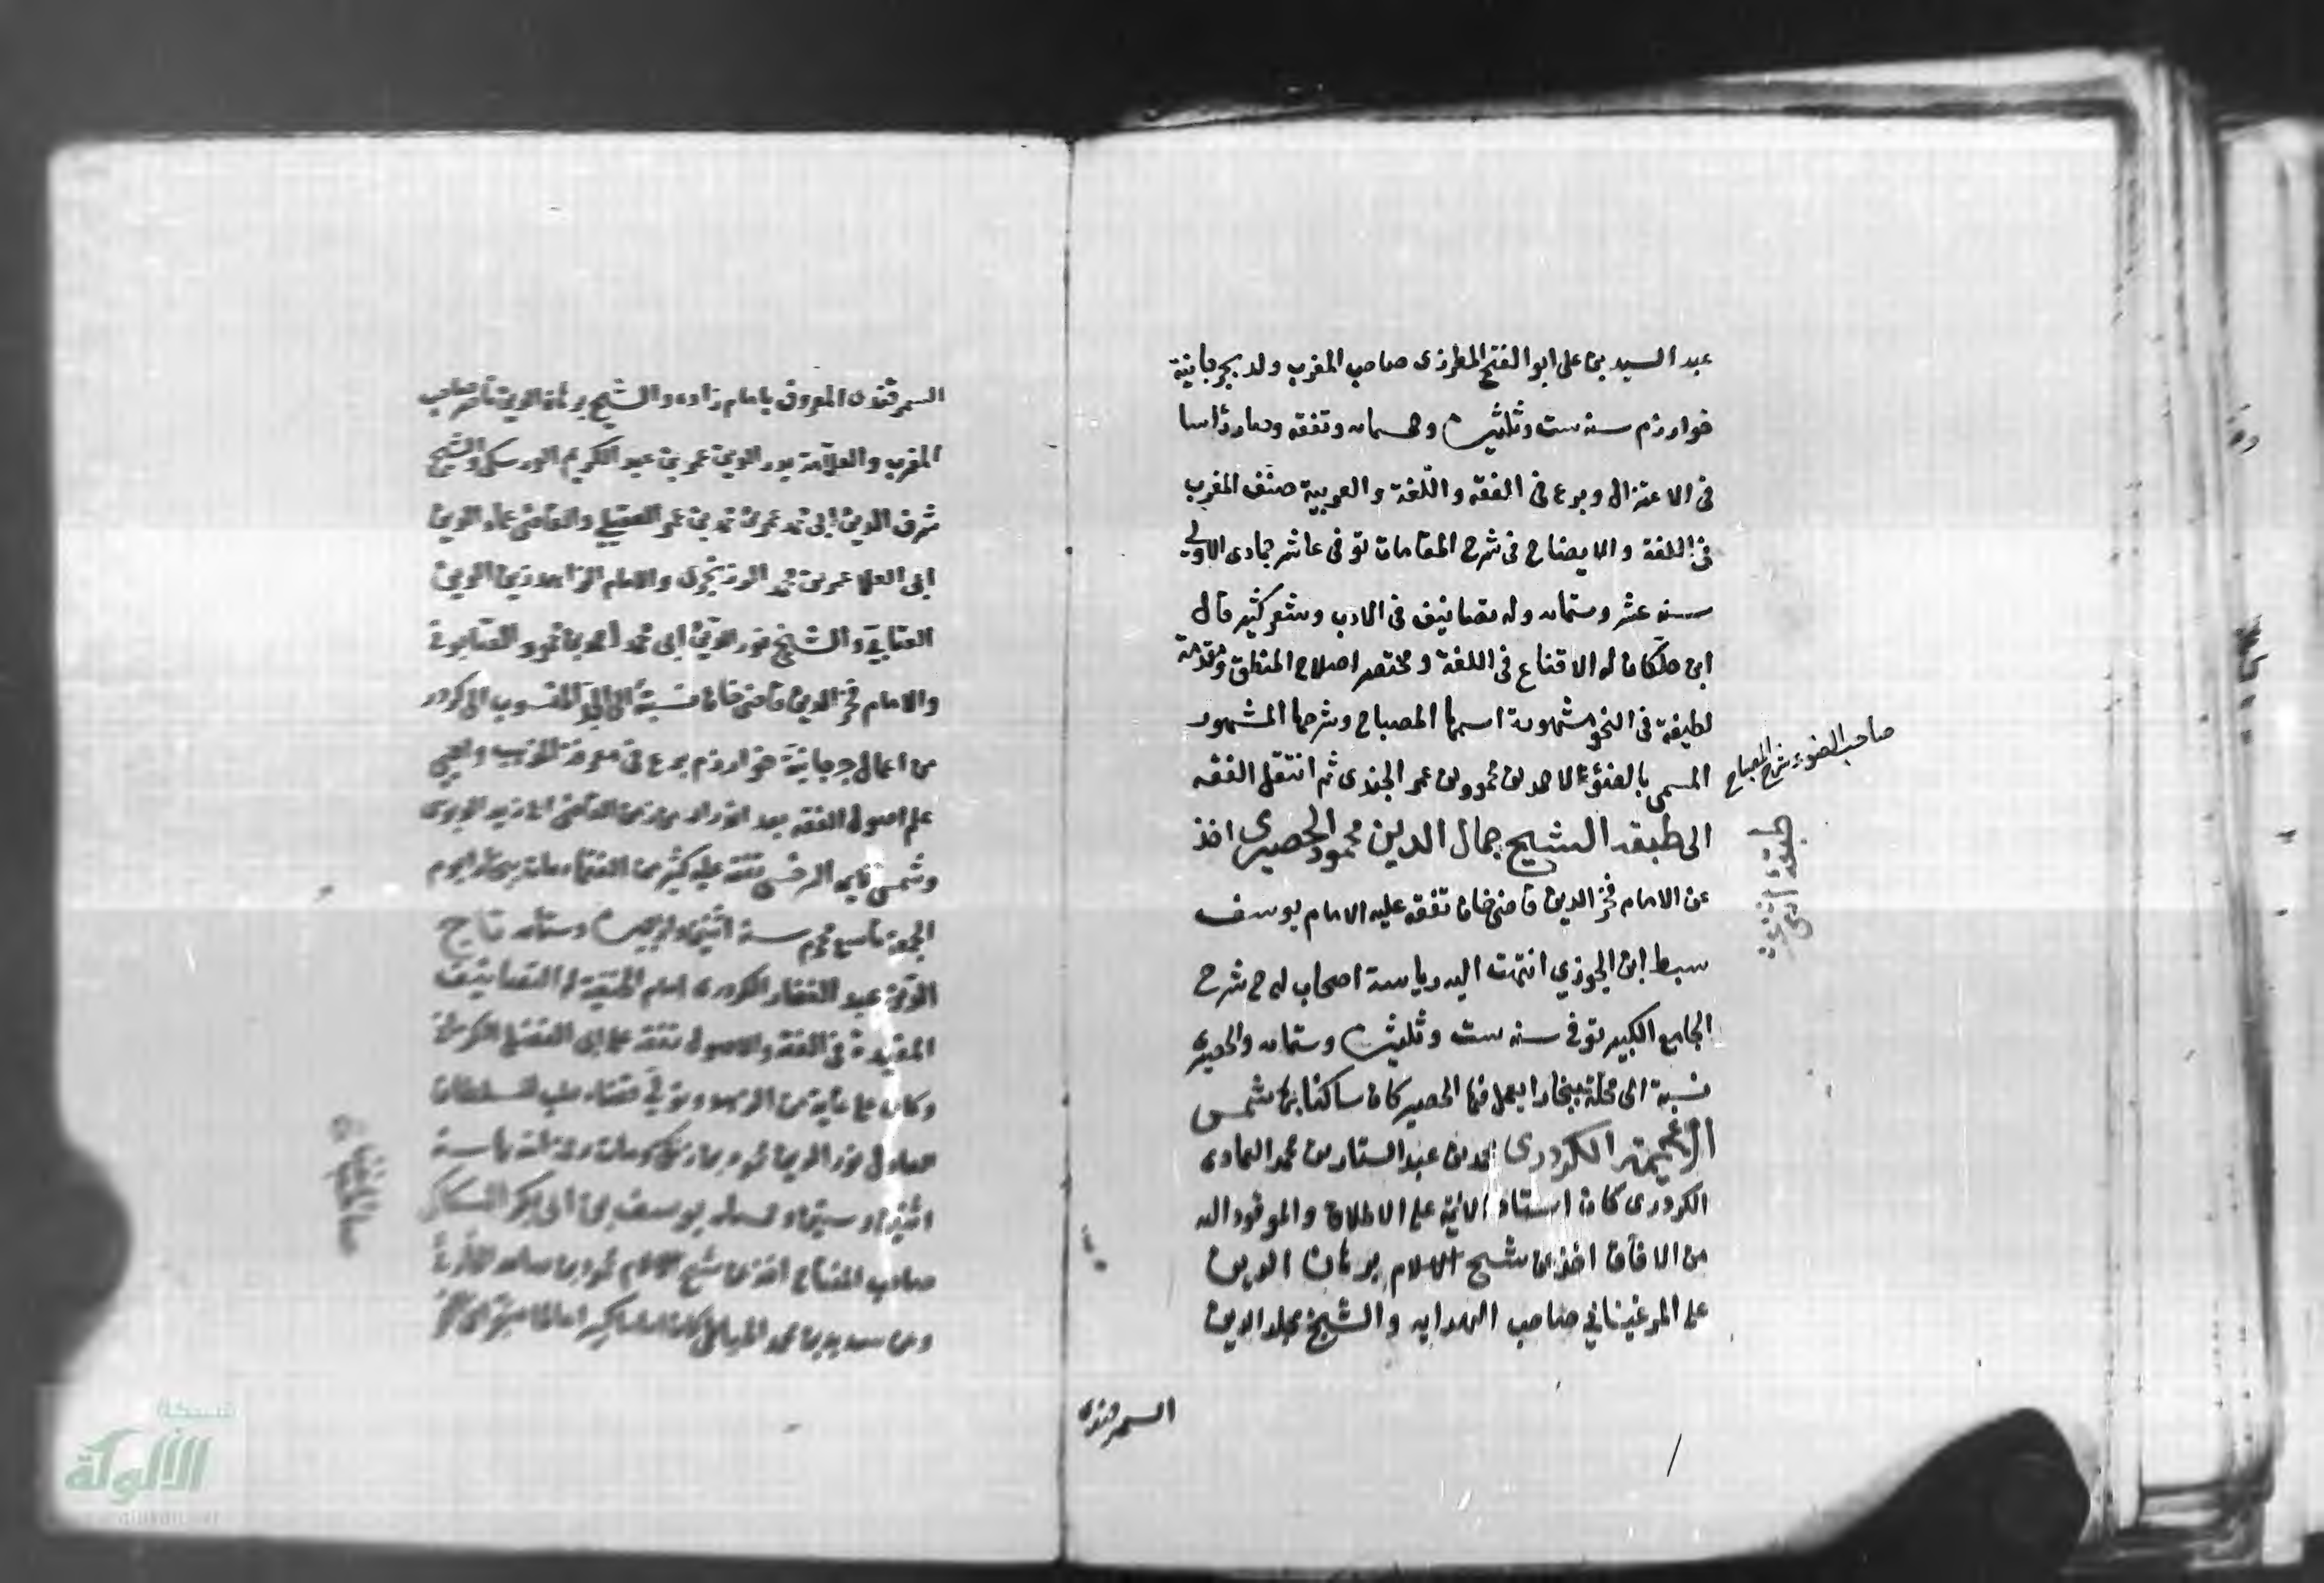 عبد السيد بن على ابو الفتح المطرزى صاحب المغرب ولد بجرجانية
خوارزم سنه ست وثلثين وخمسمايه وتفقه وصار رأسا
فى الاعتزال وبرع فى الفقه واللغة والعربية صنف المغرب
فى اللغة والايضاح فى شرح المقامات توفى عاشر جمادى الاولى
سنه عشر وستمايه وله تصانيف فى الادب وشعر كثير قال
ابن خلكان له الاقناع فى اللغة ومختصر اصلاح المنطق ومقدمة
لطيفة فى النحو مشهورة اسمها المصباح وشرحها المشهور
المسمى بالضوء لاحمد بن محمود بن عمر الجندى ثم انتقل الفقه
صاحب الضوء شرح المصباح
الى طبقه الشيخ جمال الدين محمود الحصيرى اخذ
طبقة اخرى
عن الامام فخر الدين قاضى خان تفقه عليه الامام يوسف
سبط ابن الجوزي انتهت اليه رياسة اصحاب له ح شرح
الجامع الكبير توفى سنه ست وثلثين وستمايه والحصيرى
نسبة الى محلة ببخارا يعمل فيها الحصير كان ساكنا بها شمس
الائمة الكردرى محمد بن عبد الستار بن محمد العمادى
الكردرى كان استاد الائمة على الاطلاق والموفود اليه
من الافاق اخذ عن شيخ الاسلام برهان الدين
على المرغينانى صاحب الهدايه والشيخ مجد الدين
السمرقندى
السمرقندى المعروف بامام زاده والشيخ برهان الدين ناصر صاحب
المغرب والعلامة بدر الدين عمر بن عبد الكريم الورسكى والشيخ
شرف الدين ابى محمد عمر بن محمد بن عمر العقيلى والقاضى عماد الدين
ابى العلا عمر بن محمد الزرنجرى والامام الزاهد زين الدين
العتابى والشيخ نور الدين ابى محمد احمد بن محمود الصابونى
والامام فخر الدين قاضى خان نسبة الى المنسوب الى كردر
من اعمال جرجانية خوارزم برع فى معرفة المذهب واحيى
علم اصول الفقه بعد اندراسه من زمن القاضى ابى زيد الدبوسى
وشمس الائمه السرخسى تفقه عليه كثير من الفقهاء مات ببخارا يوم
الجمعة تاسع محرم سنة اثنين واربعين وستمايه تاج
الدين عبد الغفار الكردرى امام الحنفية له التصانيف
المفيدة فى الفقه والاصول تفقه على ابى الفضل الكرمانى
وكان على غاية من الزهد وتولى قضاء حلب للسلطان
العادل نور الدين محمود بن زنكى ومات سنة
اثنين وستين وخمسمايه يوسف بن ابى بكر السكاكى
صاحب المفتاح
صاحب المفتاح اخذ عن شيخ الاسلام محمود بن صاعد الحارثى
وعن سديد بن محمد الخياطى كان اماما كبيرا عالما